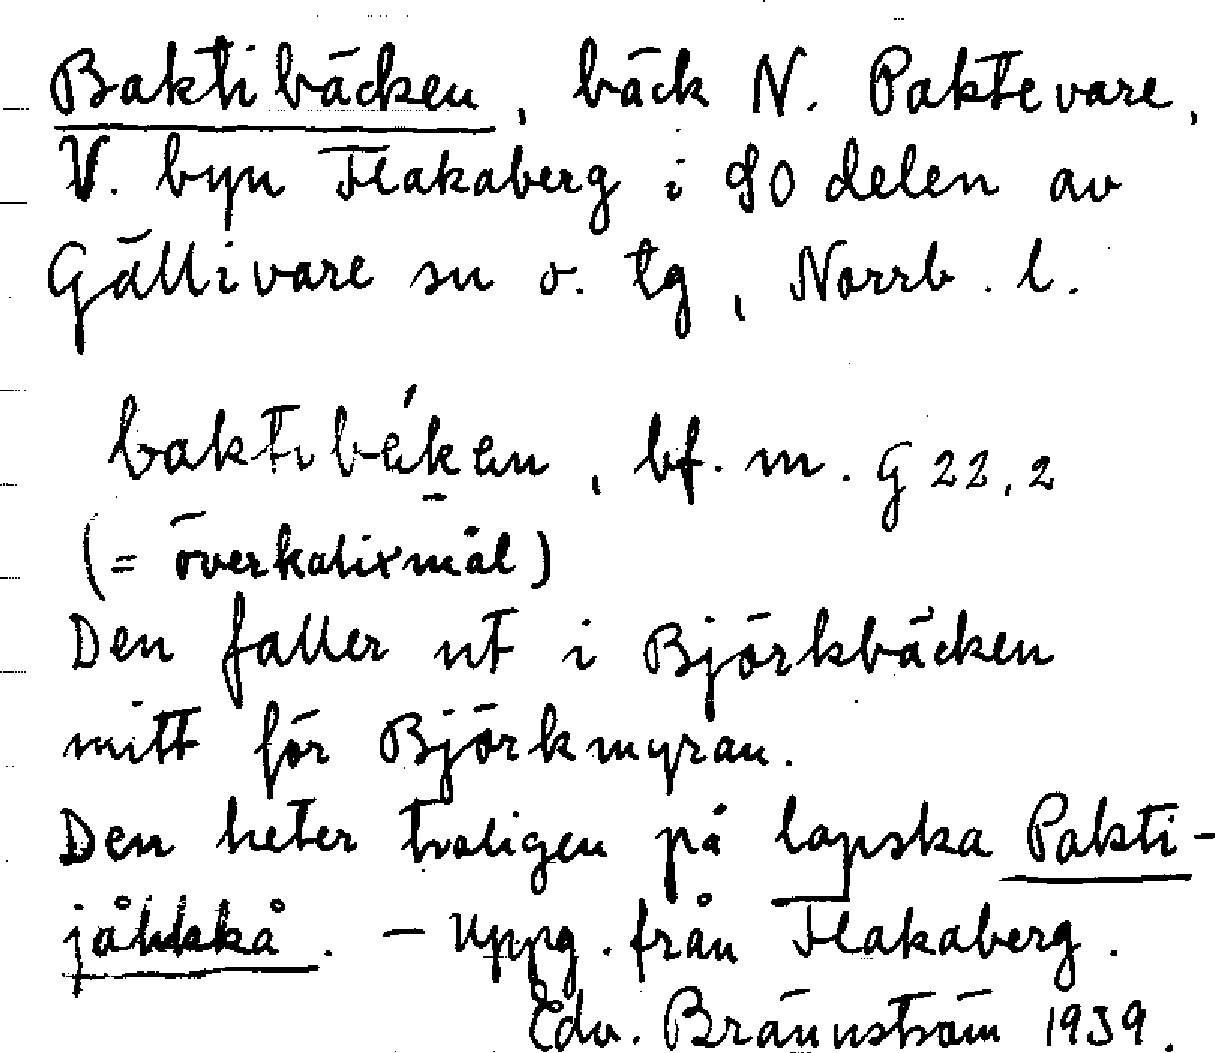 Baktibäcken, bäck N. Paktevare,
V. byn Flakaberg i SO delen av
Gällivare sn o. tg, Norrb. l.
baktibékän, bf. m. G 22,2
(= överkalixmål)
Den faller ut i Björkbäcken
mitt för Björkmyran.
Den heter troligen på lapska Pakti-
. – Uppg. från Flakaberg.
Edv. Brännström 1939.